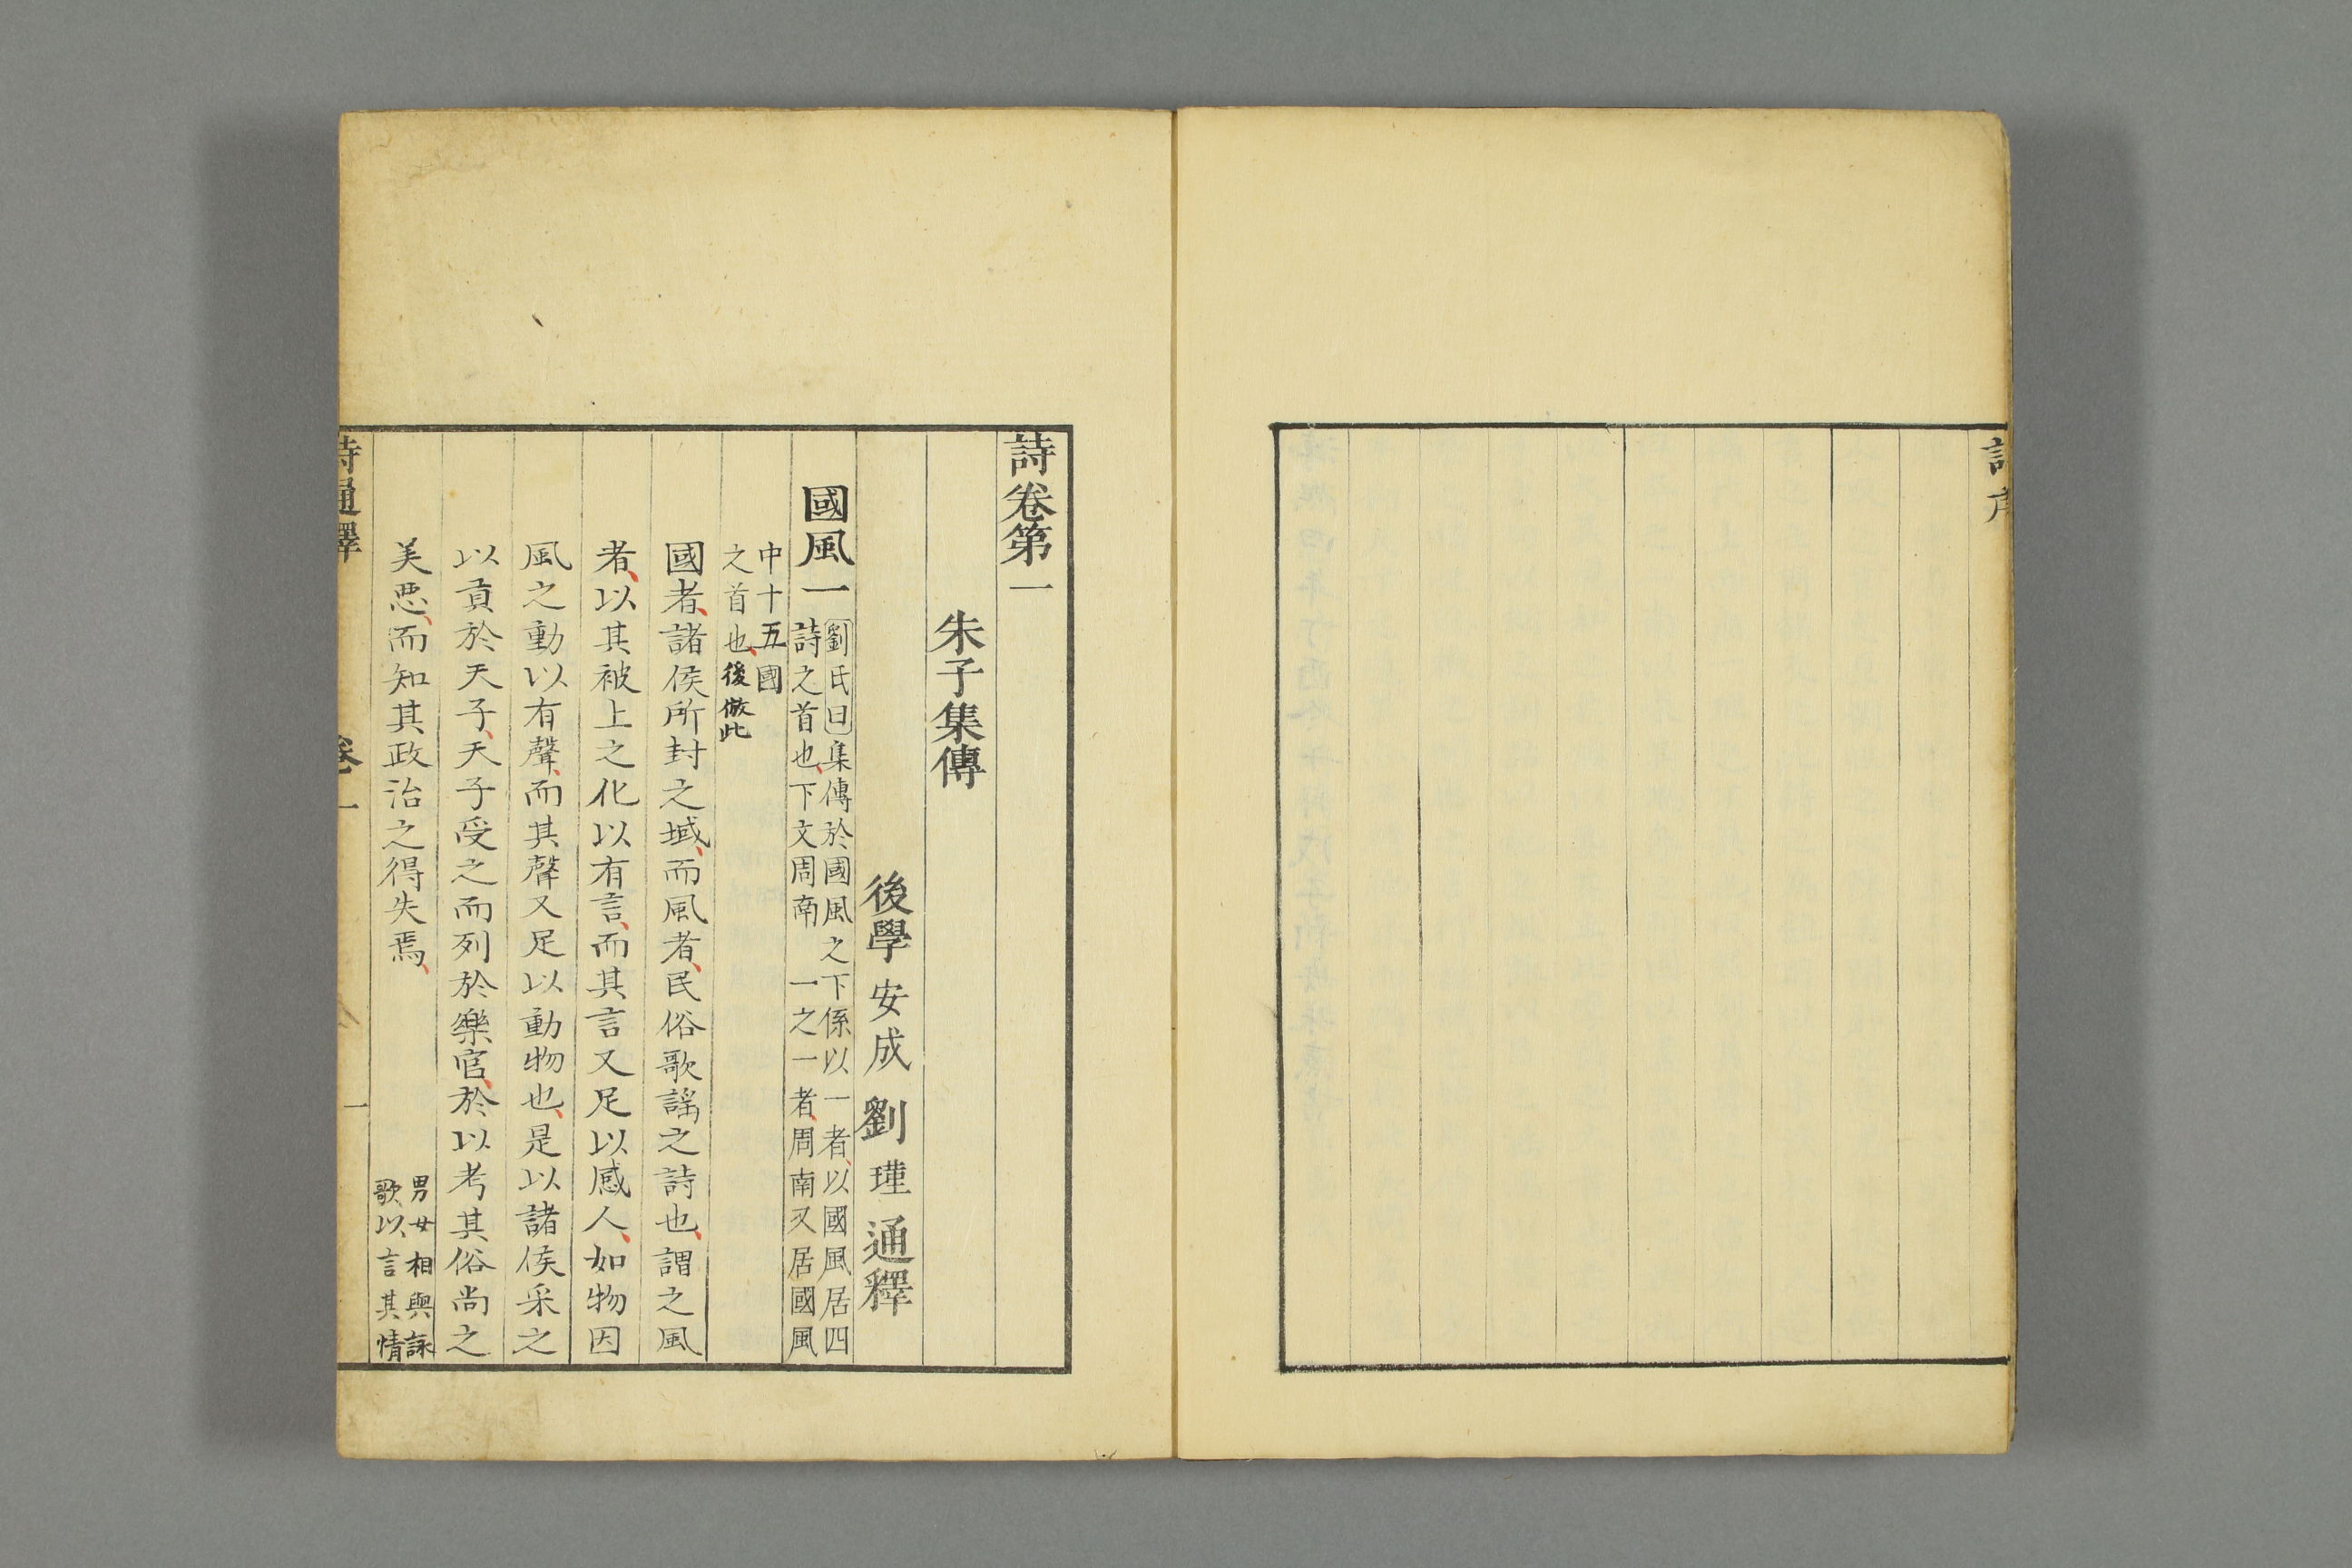 詩卷第一
朱子集傳
後學安成劉瑾通釋
國風一
劉氏曰集傳於國風之下係以一者以國風居四
詩之首也下文周南一之一者周南又居國風
中十五國
之首也後倣此
國者諸侯所封之域而風者民俗歌謡之詩也謂之風
者以其被上之化以有言而其言又足以感人如物因
風之動以有聲而其聲又足以動物也是以諸侯采之
以貢於天子天子受之而列於樂官於以考其俗尚之
美惡而知其政治之得失焉
男女相與詠
歌以言其情
詩通釋 卷一 一